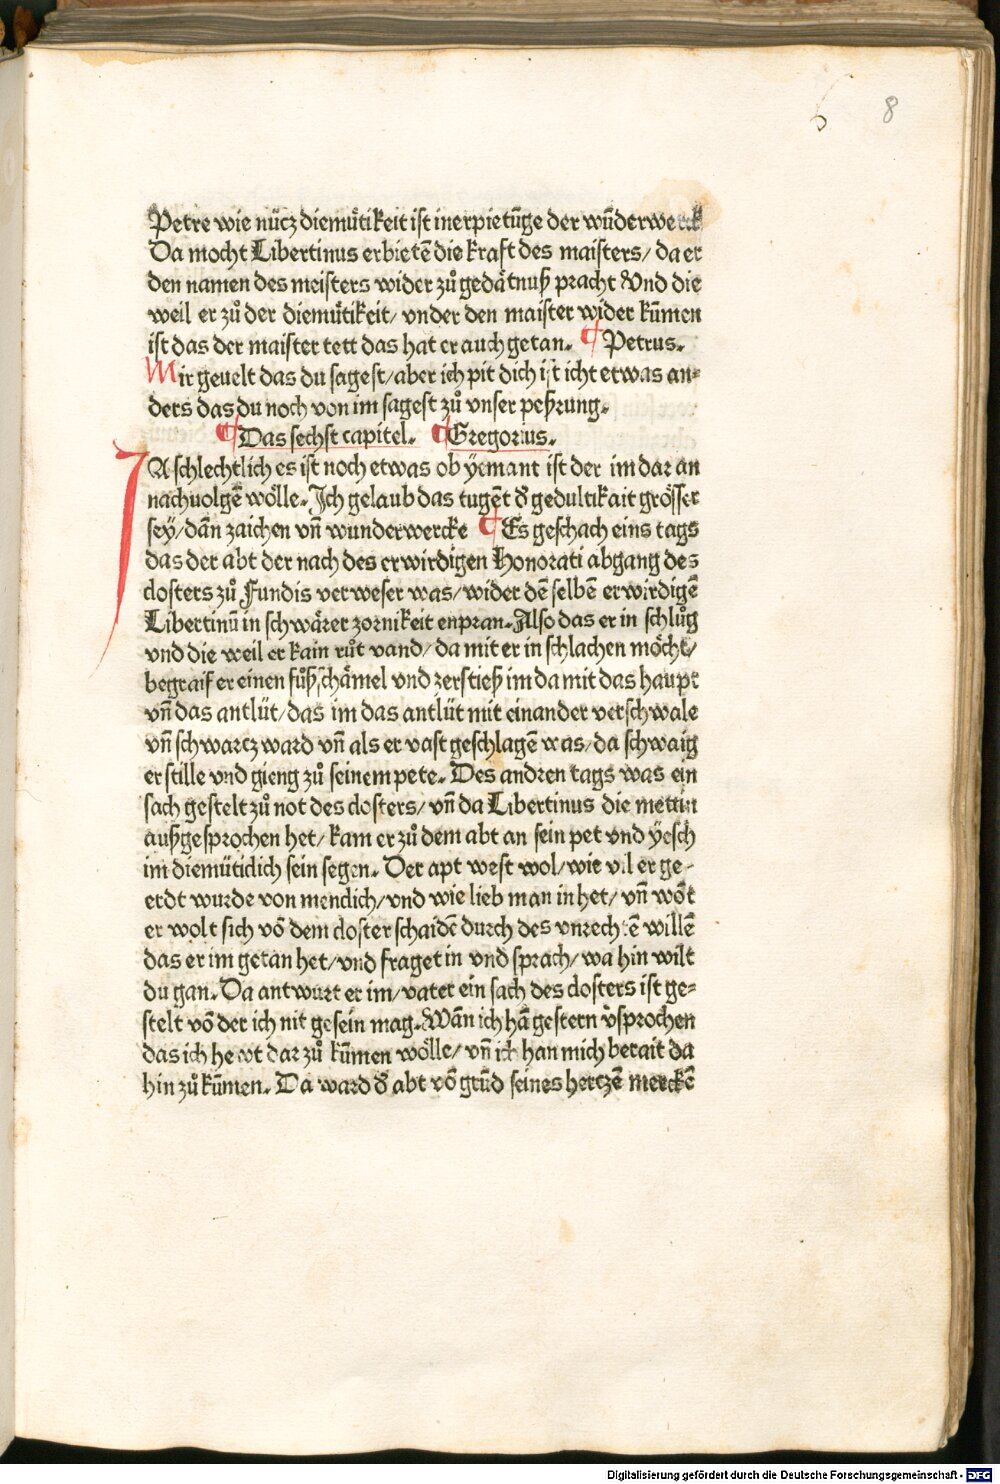 6 8
Petre wie nücz diemütikeit ist inerpietūge der wūderwerck
Da mocht Libertinus erbietē die kraft des maisters/ da er
den namen des meisters wider zů gedåtnuß pracht Vnd die
weil er zů der diemütikeit/ vnder den maister wider kūmen
ist das der maister tett das hat er auch getan. ¶ Petrus.
Mir geuelt das du sagest/ aber ich pit dich ist icht etwas an=
ders das du noch von im sagest zů vnser peßrung.
¶ Das sechst capitel. ¶ Gregorius.
IA schlechtlich es ist noch etwas ob yemant ist der im dar an
nachuolgē wölle. Ich gelaub das tugēt d̓ gedultikait grösser
sey/ dān zaichen vn̄ wunderwercke ¶ Es geschach eins tags
das der abt der nach des erwirdigen Honorati abgang des
closters zů Fundis verweser was/ wider dē selbē erwirdigē
Libertinū in schwårer zornikeit enpran. Also das er in schlůg
vnd die weil er kain růt vand/ da mit er in schlachen möcht/
begraif er einen fůßschåmel vnd zerstieß im da mit das haupt
vn̄ das antlüt/ das im das antlüt mit einander verschwale
vn̄ schwarcz ward vn̄ als er vast geschlagē was/ da schwaig
er stille vnd gieng zů seinem pete. Des andren tags was ein
sach gestelt zů not des closters/ vn̄ da Libertinus die mettin
außgesprochen het/ kam er zů dem abt an sein pet vnd yesch
im diemüticlich sein segen. Der apt west wol/ wie vil er ge-
erdt wurde von menclich/ vnd wie lieb man in het/ vn̄ wōt
er wolt sich vō dem closter schaidē durch des vnrechtē willē
das er im getan het/ vnd fraget in vnd sprach/ wa hin wilt
du gan. Da antwurt er im/ vater ein sach des closters ist ge=
stelt vō der ich nit gesein mag. Wān ich hā gestern v̓sprochen
das ich hewt dar zů kūmen wölle/ vn̄ ich han mich berait da
hin zů kūmen. Da ward d̓ abt vō grūd seines hertzē merckē
Digitalisierung gefördert durch die Deutsche Forschungsgemeinschaft - DFG